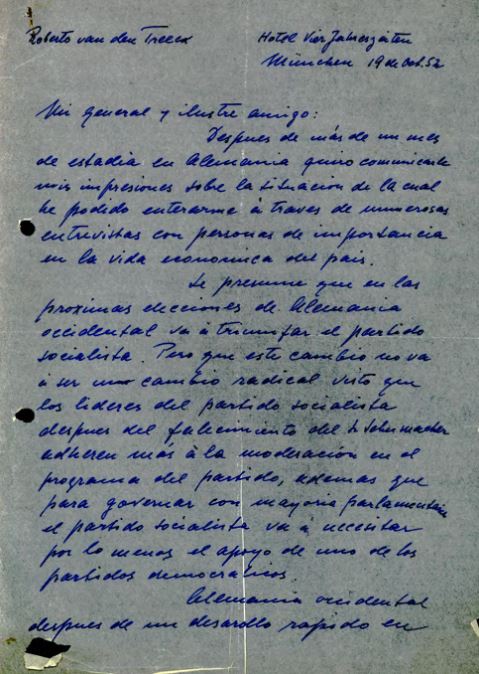 Roberto van den Treeck
Hotel Vier Jahreszeiten
München 19 de Oct. 52
Mi general y ilustre amigo:
Despues de más de un mes
de estadia en Alemania quiro comunicarle
mis impresiones sobre la situacion de la cual
he podido enterarme á traves de numerosas
entrevistas con personas de importancia
en la vida economica del pais.
Se presume que en las
proximas elecciones de Alemania
occidental va á triumfar el partido
socialista. Pero que este cambio no va
á ser un cambio radical visto que
los lideres del partido socialista
despues del falecimiento del Dr Schumacher
adhieren más á la moderación en el
programa del partido, ademas que
para governar con mayoria parlamentaria
el partido socialista va á necesitar
por lo menos el apoyo de uno de los
partidos democraticos.
Alemania occidental
despues de un desarollo rapido en